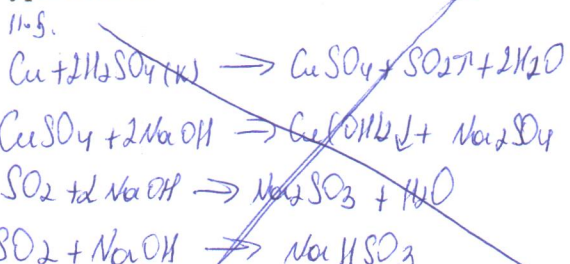 11.5.
Cu + 2H2SO4(к) → CuSO4 + SO2↑ + 2H2O
CuSO4 + 2NaOH → Cu(OH)2↓ + Na2SO4
SO2 + 2NaOH → Na2SO3 + H2O
SO2 + NaOH → NaHSO3